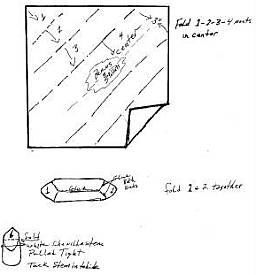 1
2
3
4
center
3
Fold 1-2-3-4 meets
in center
Glue
Glue
Both
Ends
1
2
fold 1 + 2 together
Fold
white Chenille stem
Pulled Tight
Tack Stem inside